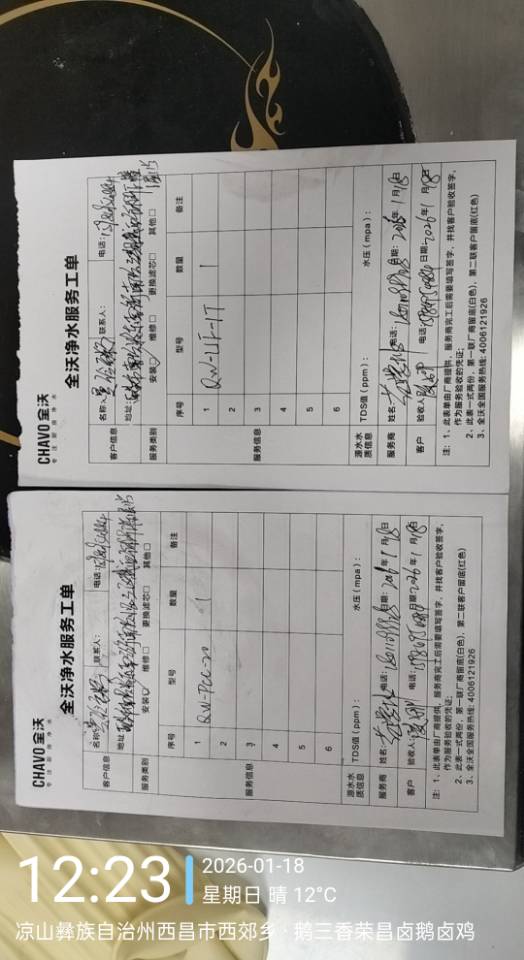 CHAVO 全沃
专注厨房净水
全沃净水服务工单
客户信息
名称:
联系人:
电话:
地址:
服务类别
安装☑ 维修□ 更换滤芯□ 其他□
服务信息
序号 型号 数量 备注
1 QW-UF-1T 1
2
3
4
5
6
源水水质信息
TDS值(ppm): 水压(mpa):
服务商 姓名: 电话: 日期: 2026年1月18日
客户 验收人: 电话: 日期: 2026年1月18日
注: 1、此表单由厂商提供,服务商完工后需要填写签字,并找客户验收签字,
作为服务验收的凭证;
2、此表一式两份,第一联厂商留底(白色),第二联客户留底(红色)
3、全沃全国服务热线:4006121926
CHAVO 全沃
专注厨房净水
全沃净水服务工单
客户信息
名称:
联系人:
电话:
地址:
服务类别
安装☑ 维修□ 更换滤芯□ 其他□
服务信息
序号 型号 数量 备注
1 QW-PCC-20 1
2
3
4
5
6
源水水质信息
TDS值(ppm): 水压(mpa):
服务商 姓名: 电话: 日期: 2026年1月18日
客户 验收人: 电话: 日期: 2026年1月18日
注: 1、此表单由厂商提供,服务商完工后需要填写签字,并找客户验收签字,
作为服务验收的凭证;
2、此表一式两份,第一联厂商留底(白色),第二联客户留底(红色)
3、全沃全国服务热线:4006121926
12:23
2026-01-18
星期日 晴 12°C
凉山彝族自治州西昌市西郊乡·鹅三香荣昌卤鹅卤鸡